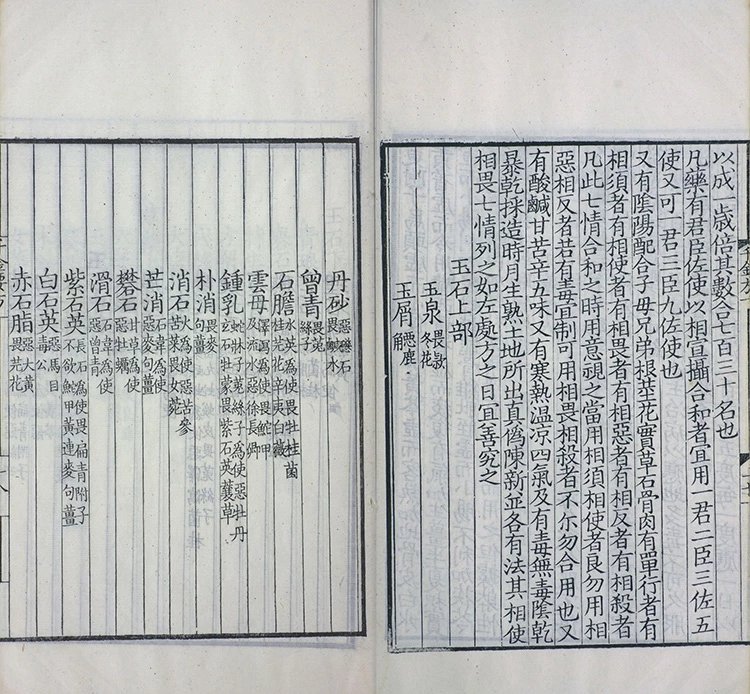 以成一歲倍其數合七百三十名也
凡藥有君臣佐使以相宣攝合和者宜用一君二臣三佐五
使又可一君二臣九佐使也
又有陰陽配合子母兄弟根莖花實草石骨肉有單行者有
相須者有相使者有相畏者有相惡者有相反者有相殺者
凡此七情合和之時用意視之當用相須相使者良勿用相
惡相反者若有毒宜制可用相畏相殺者不尔勿合用也又
有酸鹹甘苦辛五味又有寒熱溫涼四氣及有毒無毒陰乾
暴乾採造時月生熟土地所出真偽陳新並各有法其相使
相畏七情列之如左處方之日宜善究之
玉石上部
玉泉 畏款冬花
玉屑 惡鹿角
丹砂 惡磁石畏鹹水
曾青 畏菟絲子
石膽 水英為使畏牡桂菌桂芫花辛夷白薇
雲母 澤瀉為使畏鮀甲及流水惡徐長卿
鍾乳 蛇牀子菟絲子為使惡牡丹玄石牡蒙畏紫石英蘘草
朴消 畏麥句薑
消石 火為使惡苦參苦菜畏女菀
芒消 石韋為使惡麥句薑
礬石 甘草為使惡牡蠣
滑石 石韋為使惡曾青
紫石英 長石為使畏扁青附子不欲鮀甲黃連麥句薑
白石英 惡馬目毒公
赤石脂 惡大黃畏芫花